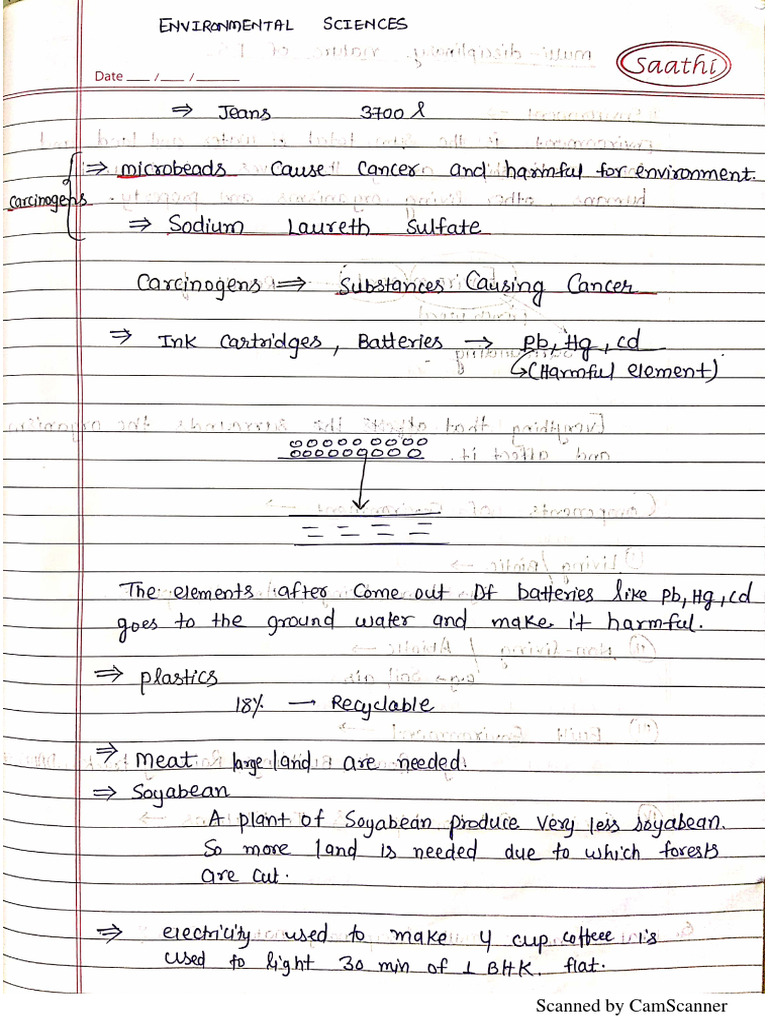 ENVIRONMENTAL SCIENCES
Date ___ /___ /______
Saathi
⇒ Jeans 3700 l
⇒ microbeads cause cancer and harmful for environment.
carcinogens
⇒ Sodium Laureth Sulfate
Carcinogens ⇒ Substances Causing Cancer
⇒ Ink cartridges, Batteries → Pb, Hg, cd
(Harmful element)
The elements after come out Of batteries like Pb, Hg, cd
goes to the ground water and make it harmful.
⇒ plastics
18% → Recyclable
⇒ meat large land are needed.
⇒ Soyabean
A plant of Soyabean produce very less soyabean.
So more land is needed due to which forests
are cut.
⇒ electricity used to make 4 cup coffee is
used to light 30 min of 1 BHK. flat.
Scanned by CamScanner